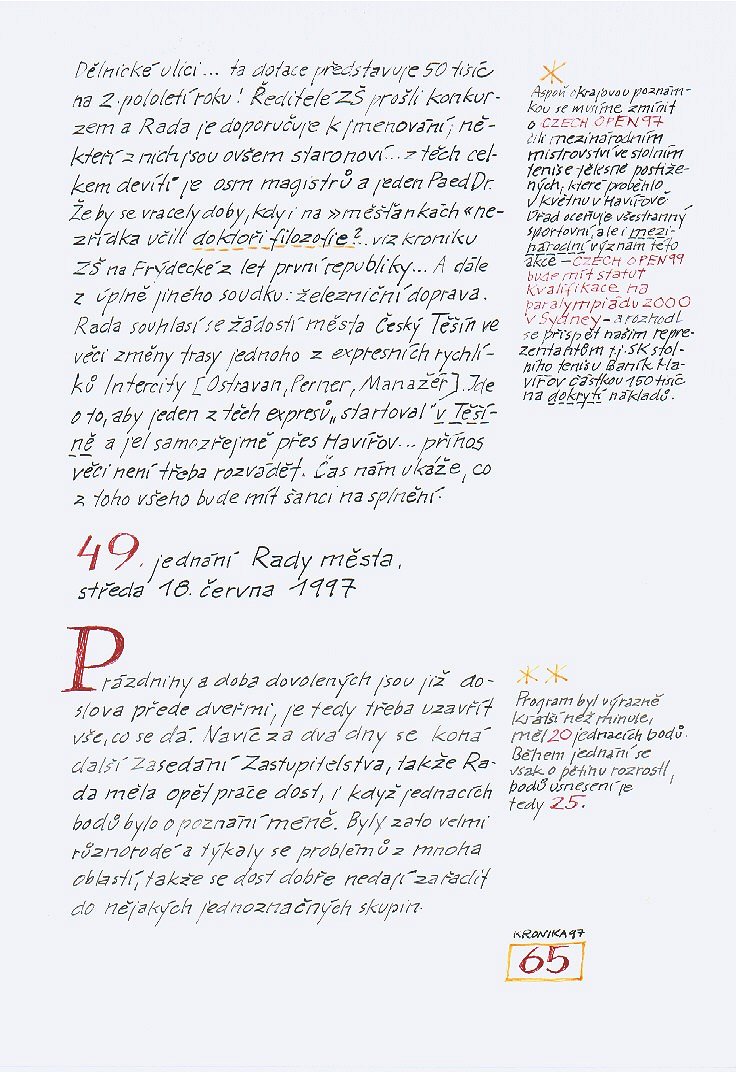 Dělnické ulici... ta dotace představuje 50 tisíc
na 2. pololetí roku! Ředitelé ZŠ prošli konkur-
zem a Rada je doporučuje k jmenování; ně-
kteří z nich jsou ovšem staronoví... z těch cel-
kem devíti je osm magistrů a jeden PaedDr.
Že by se vracely doby, kdy i na »měšťankách« ne-
zřídka učili doktoři filozofie? ... viz kroniku
ZŠ na Frýdecké z let první republiky... A dále
z úplně jiného soudku: železniční doprava.
Rada souhlasí se žádostí města Český Těšín ve
věci změny trasy jednoho z expresních rychlí-
ků Intercity [Ostravan, Perner, Manažér]. Jde
o to, aby jeden z těch expresů „startoval" v Těší-
ně a jel samozřejmě přes Havířov... přínos
věci není třeba rozvádět. Čas nám ukáže, co
z toho všeho bude mít šanci na splnění.
49. jednání Rady města,
středa 18. června 1997
Prázdniny a doba dovolených jsou již do-
slova přede dveřmi, je tedy třeba uzavřít
vše, co se dá. Navíc za dva dny se koná
další zasedání Zastupitelstva, takže Ra-
da měla opět práce dost, i když jednacích
bodů bylo o poznání méně. Byly zato velmi
různorodé a týkaly se problémů z mnoha
oblastí, takže se dost dobře nedají zařadit
do nějakých jednoznačných skupin.
*
Aspoň okrajovou poznám-
kou se musíme zmínit
o CZECH OPEN 97
čili mezinárodním
mistrovství ve stolním
tenise tělesně postiže-
ných, které proběhlo
v květnu v Havířově
Úřad oceňuje všestranný
sportovní, ale i mezi-
národní význam této
akce – CZECH OPEN 99
bude mít statut
kvalifikace na
paralympiádu 2000
v Sydney – a rozhodl
se přispět našim repre-
zentantům tj. SK stol-
ního tenisu Baník Ha-
vířov částkou 150 tisíc
na dokrytí nákladů.
**
Program byl výrazně
kratší než minule,
měl 20 jednacích bodů.
Během jednání se
však o pětinu rozrostl,
bodů usnesení je
tedy 25.
KRONIKA 97
65